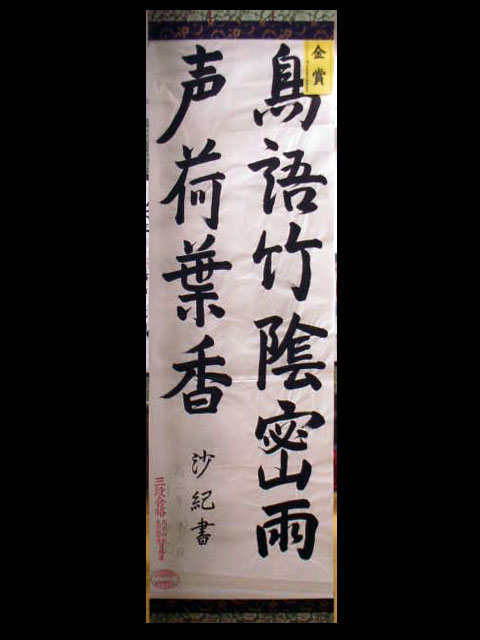 鳥語竹陰密雨
声荷葉香
沙紀書
金賞
三段合格